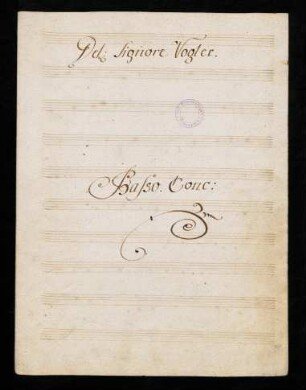 Del: Signore Vogler.
Basso. Conc: